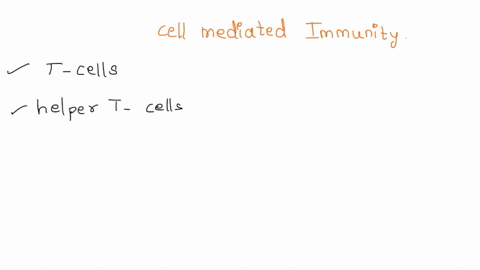 cell mediated Immunity.
✓ T-cells
✓ helper T- cells